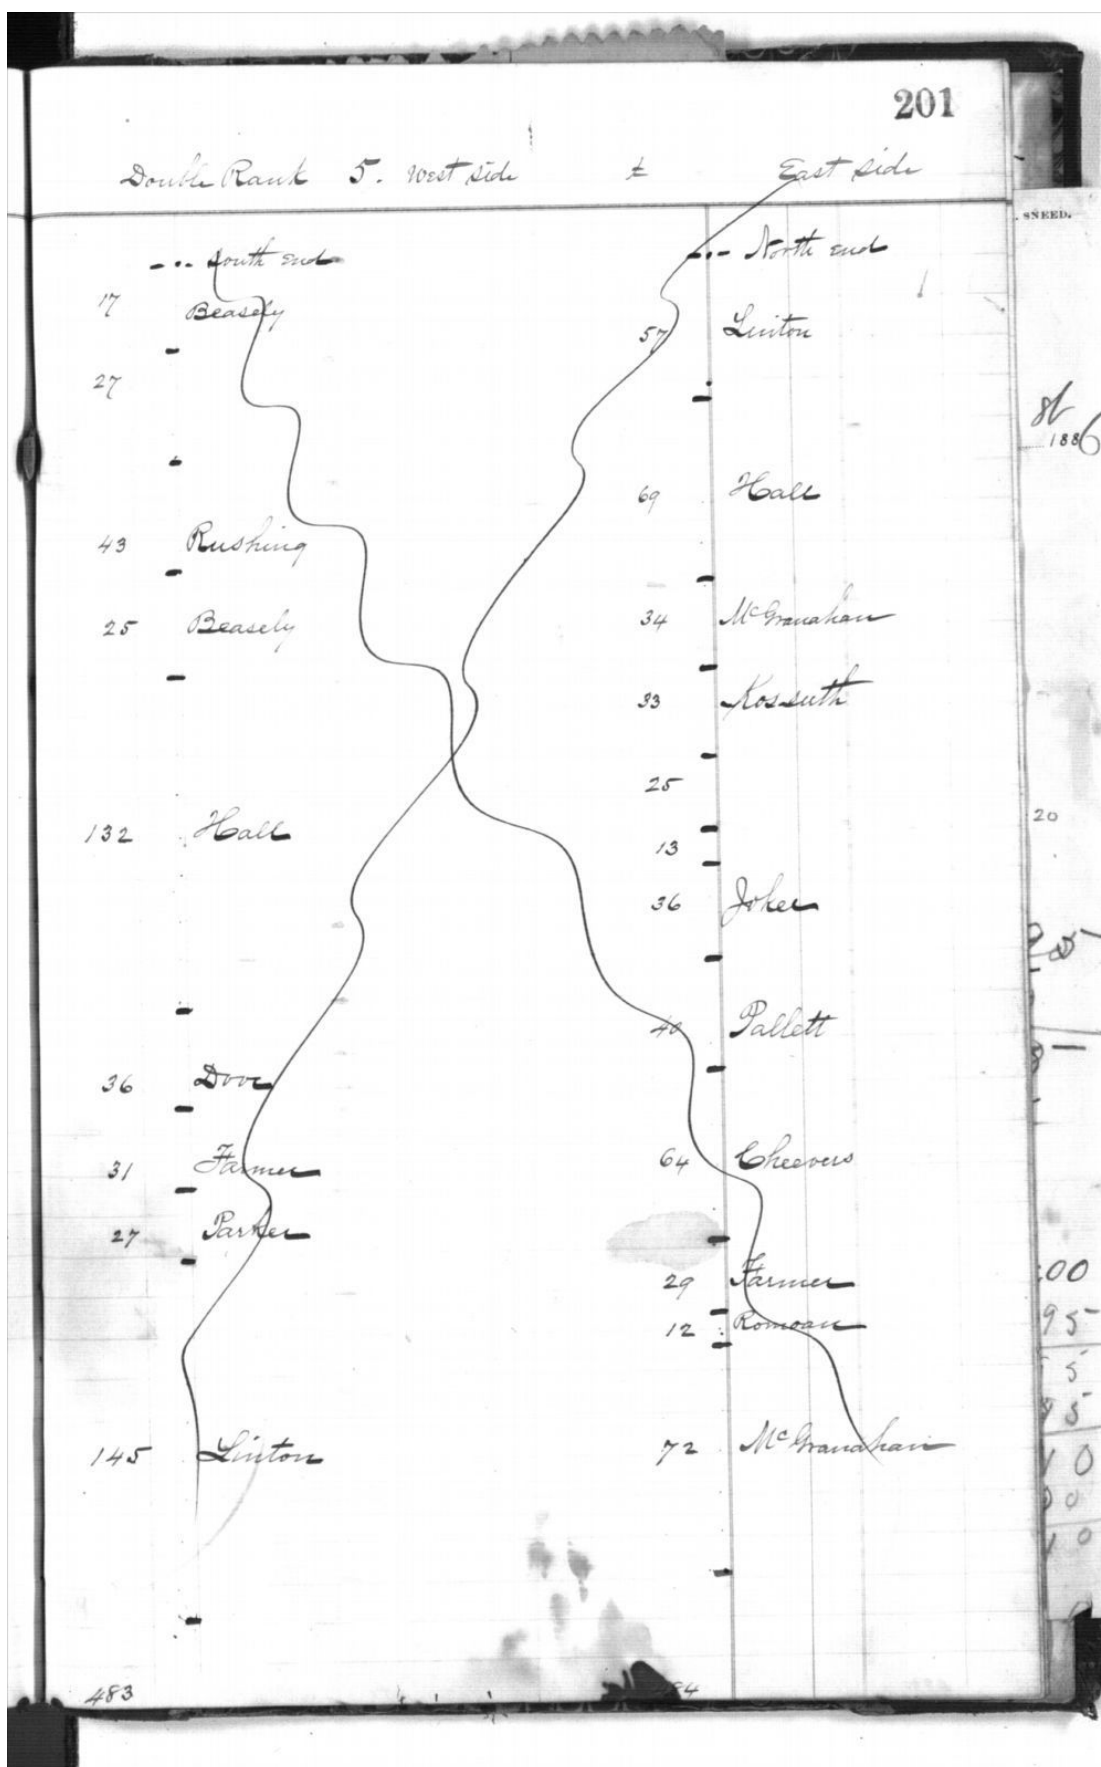 201
Double Rank 5. West side & East side
South End
17 Beasely
27
43 Rushing
25 Beasely
132 Hall
36 Dove
31 Farmer
27 Parker
145 Linton
483
North end
57 Linton
69 Hall
34 McGranahan
33 Kossuth
25
13
36 Joker
40 Pallett
64 Cheevers
29 Farmer
12 Romoan
72 McGranahan
84
SNEED.
1886
20
00
95
5
95
10
00
10